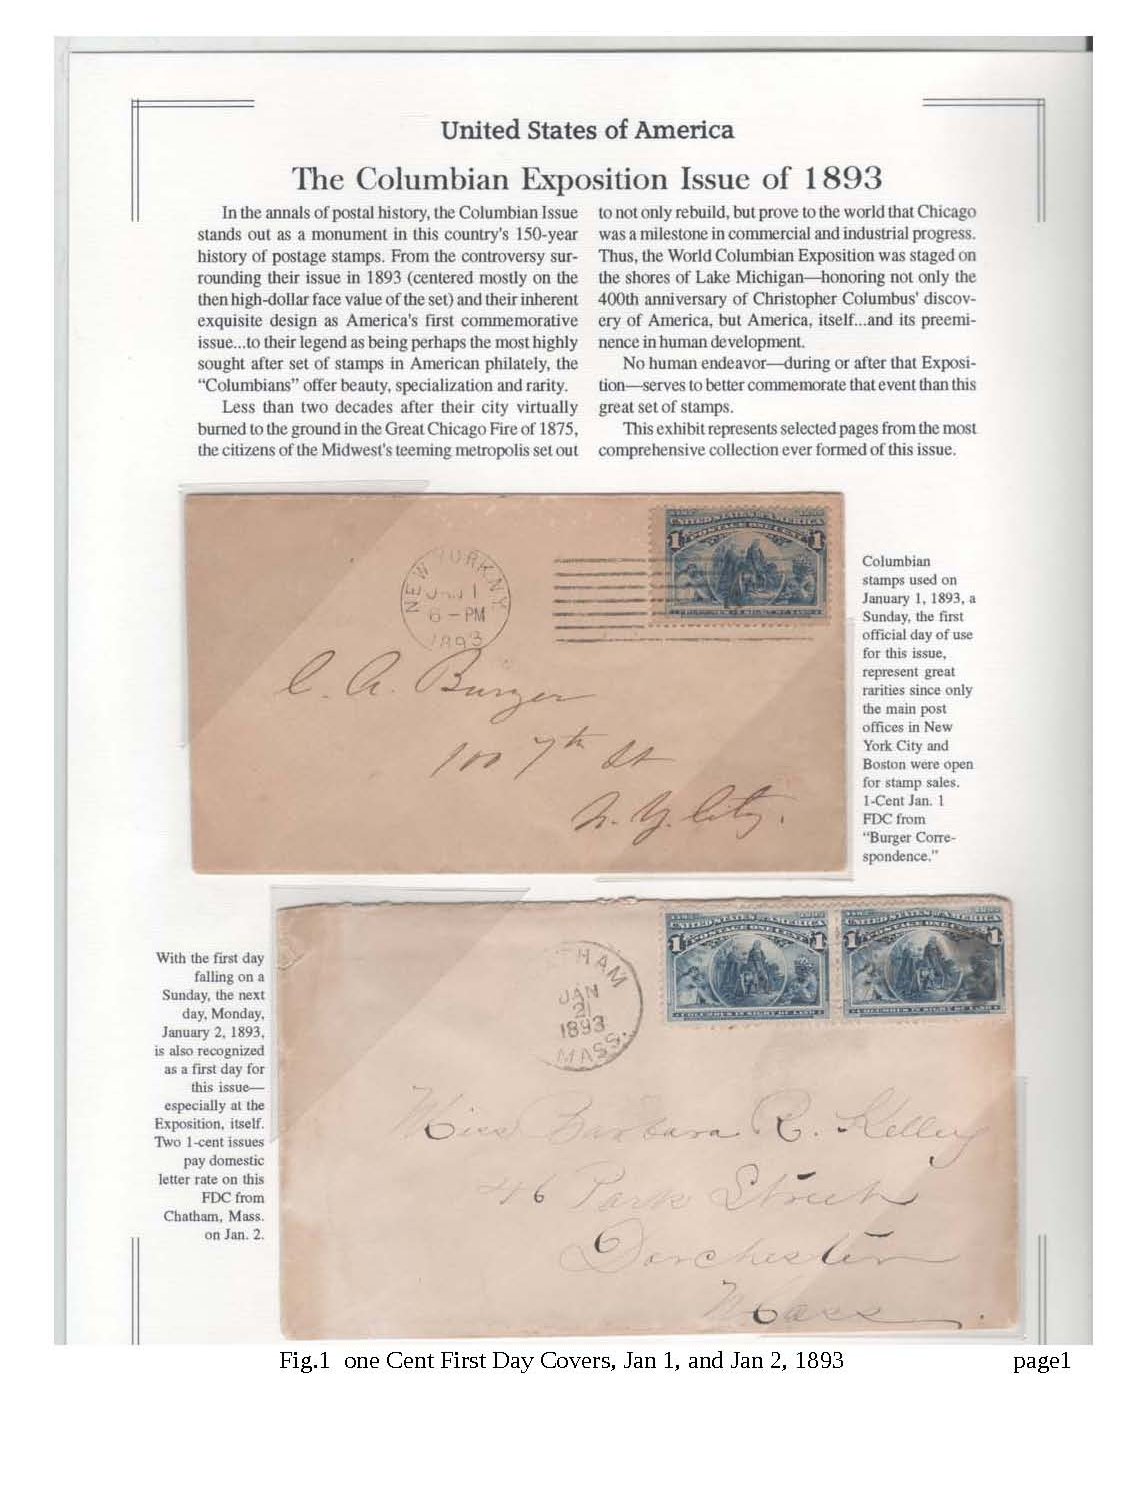 United States of America
The Columbian Exposition Issue of 1893
In the annals of postal history, the Columbian Issue
stands out as a monument in this country's 150-year
history of postage stamps. From the controversy sur-
rounding their issue in 1893 (centered mostly on the
then high-dollar face value of the set) and their inherent
exquisite design as America's first commemorative
issue...to their legend as being perhaps the most highly
sought after set of stamps in American philately, the
“Columbians” offer beauty, specialization and rarity.
Less than two decades after their city virtually
burned to the ground in the Great Chicago Fire of 1875,
the citizens of the Midwest's teeming metropolis set out
to not only rebuild, but prove to the world that Chicago
was a milestone in commercial and industrial progress.
Thus, the World Columbian Exposition was staged on
the shores of Lake Michigan—honoring not only the
400th anniversary of Christopher Columbus' discov-
ery of America, but America, itself...and its preemi-
nence in human development.
No human endeavor—during or after that Exposi-
tion—serves to better commemorate that event than this
great set of stamps.
This exhibit represents selected pages from the most
comprehensive collection ever formed of this issue.
NEW YORK, N.Y.
JAN 1
6 - PM
1893
UNITED STATES OF AMERICA
POSTAGE ONE CENT
1 1
C. A. Burger
100 7th St
N. Y. City.
Columbian
stamps used on
January 1, 1893, a
Sunday, the first
official day of use
for this issue,
represent great
rarities since only
the main post
offices in New
York City and
Boston were open
for stamp sales.
1-Cent Jan. 1
FDC from
“Burger Corre-
spondence.”
With the first day
falling on a
Sunday, the next
day, Monday,
January 2, 1893,
is also recognized
as a first day for
this issue—
especially at the
Exposition, itself.
Two 1-cent issues
pay domestic
letter rate on this
FDC from
Chatham, Mass.
on Jan. 2.
THAM
JAN
2
1893
MASS.
UNITED STATES OF AMERICA
POSTAGE ONE CENT
1 1
COLUMBUS IN SIGHT OF LAND
UNITED STATES OF AMERICA
POSTAGE ONE CENT
1 1
COLUMBUS IN SIGHT OF LAND
Miss Barbara R. Kelley
46 Park Street
Dorchester
Mass.
Fig.1 one Cent First Day Covers, Jan 1, and Jan 2, 1893
page1